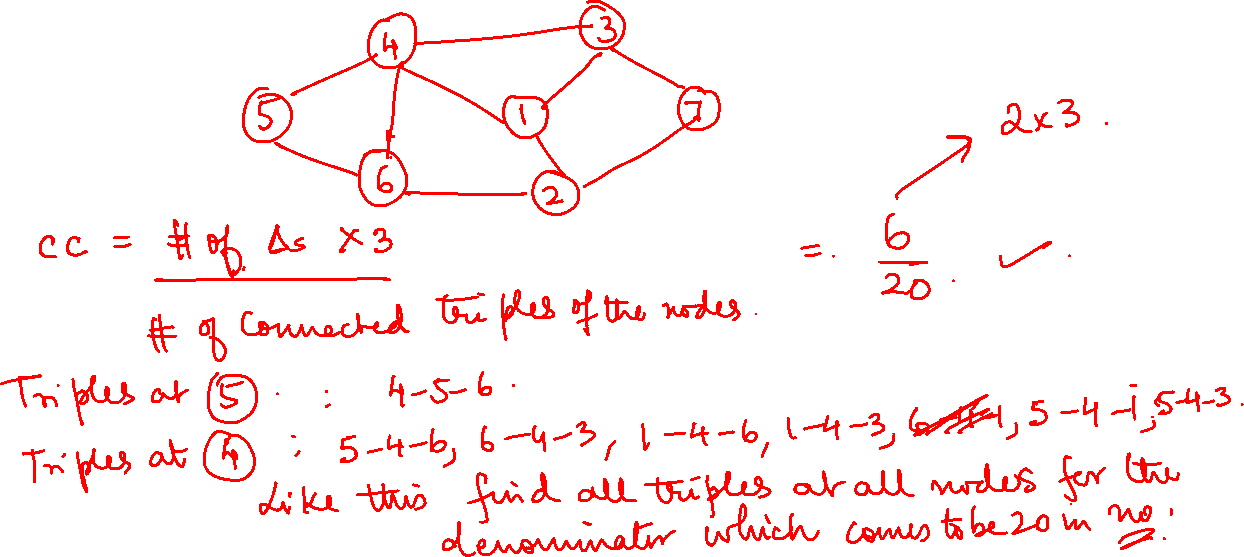 4
3
5
1
7
6
2
2x3.
CC = # of Δs × 3
# of connected triples of the nodes.
= 6
20
Triples at 5 : 4-5-6.
Triples at 4 : 5-4-6, 6-4-3, 1-4-6, 1-4-3, 5-4-1, 5-4-3.
Like this find all triples at all nodes for the
denominator which comes to be 20 in no.